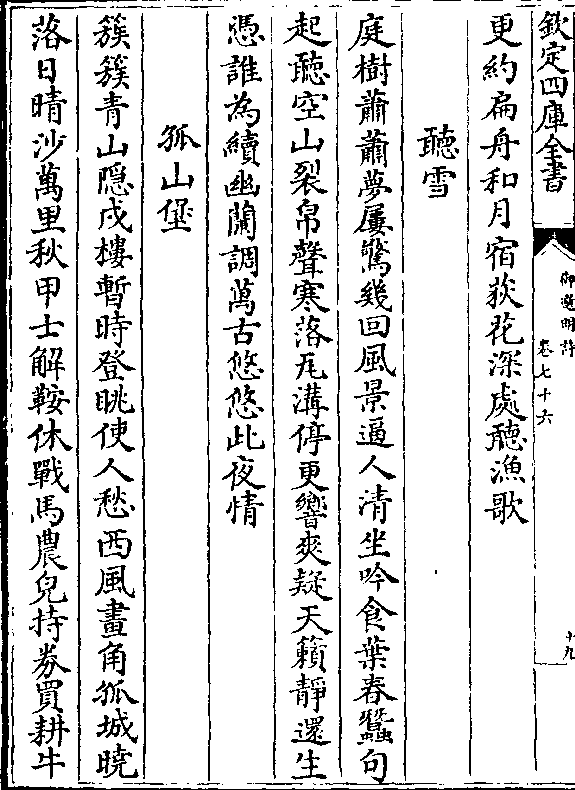 欽定四庫全書
御選明詩
卷七十六
十九
更約扁舟和月宿荻花深處聽漁歌
聽雪
庭樹蕭蕭夢屢驚幾回風景逼人清坐吟食葉春蠶句
起聽空山裂帛聲寒落瓦溝停更響爽疑天籟靜還生
憑誰為續幽蘭調萬古悠悠此夜情
孤山堡
簇簇青山隠戍樓暫時登眺使人愁西風畫角孤城曉
落日晴沙萬里秋甲士解鞍休戰馬農兒持劵買耕牛